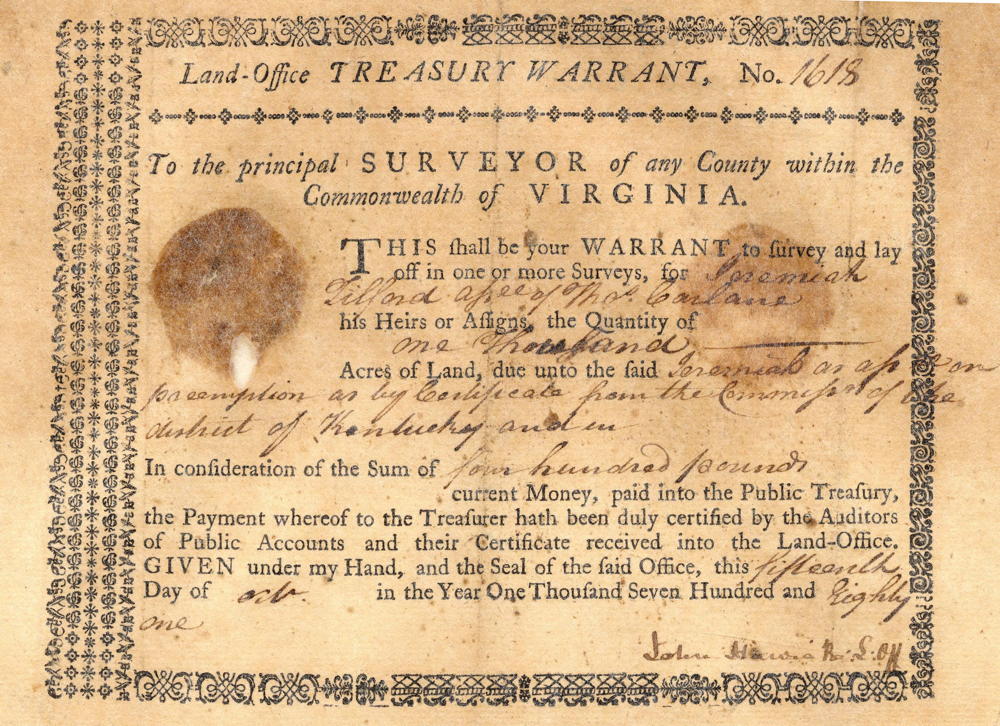 Land-Office TREASURY WARRANT, No. 1618
To the principal SURVEYOR of any County within the
Commonwealth of VIRGINIA.
THIS ſhall be your WARRANT to ſurvey and lay
off in one or more Surveys, for Jeremiah
Tilford aſſee of Thos.
his Heirs or Aſſigns, the Quantity of
one Thouſand
Acres of Land, due unto the ſaid Jeremiah as
preemption as by Certificate from the Commiſrs of the
district of Kentuckey and in
In conſideration of the Sum of four hundred pounds
current Money, paid into the Public Treaſury,
the Payment whereof to the Treaſurer hath been duly certified by the Auditors
of Public Accounts and their Certificate received into the Land-Office.
GIVEN under my Hand, and the Seal of the ſaid Office, this fifteenth
Day of oct. in the Year One Thouſand Seven Hundred and Eighty
one
John Harvie R. L. Off